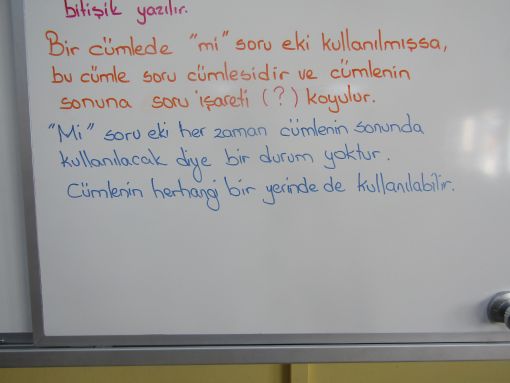 bitişik yazılır.
Bir cümlede "mi" soru eki kullanılmışsa,
bu cümle soru cümlesidir ve cümlenin
sonuna soru işareti (?) koyulur.
"Mi" soru eki her zaman cümlenin sonunda
kullanılacak diye bir durum yoktur.
Cümlenin herhangi bir yerinde de kullanılabilir.